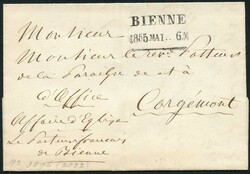 BIENNE
1855 MAI
Monsieur
Monsieur le rev. Pasteur
de la Paroisse de et à
d'Office
Corgémont
Affaire d'Eglise
Le Pasteur français
de Bienne